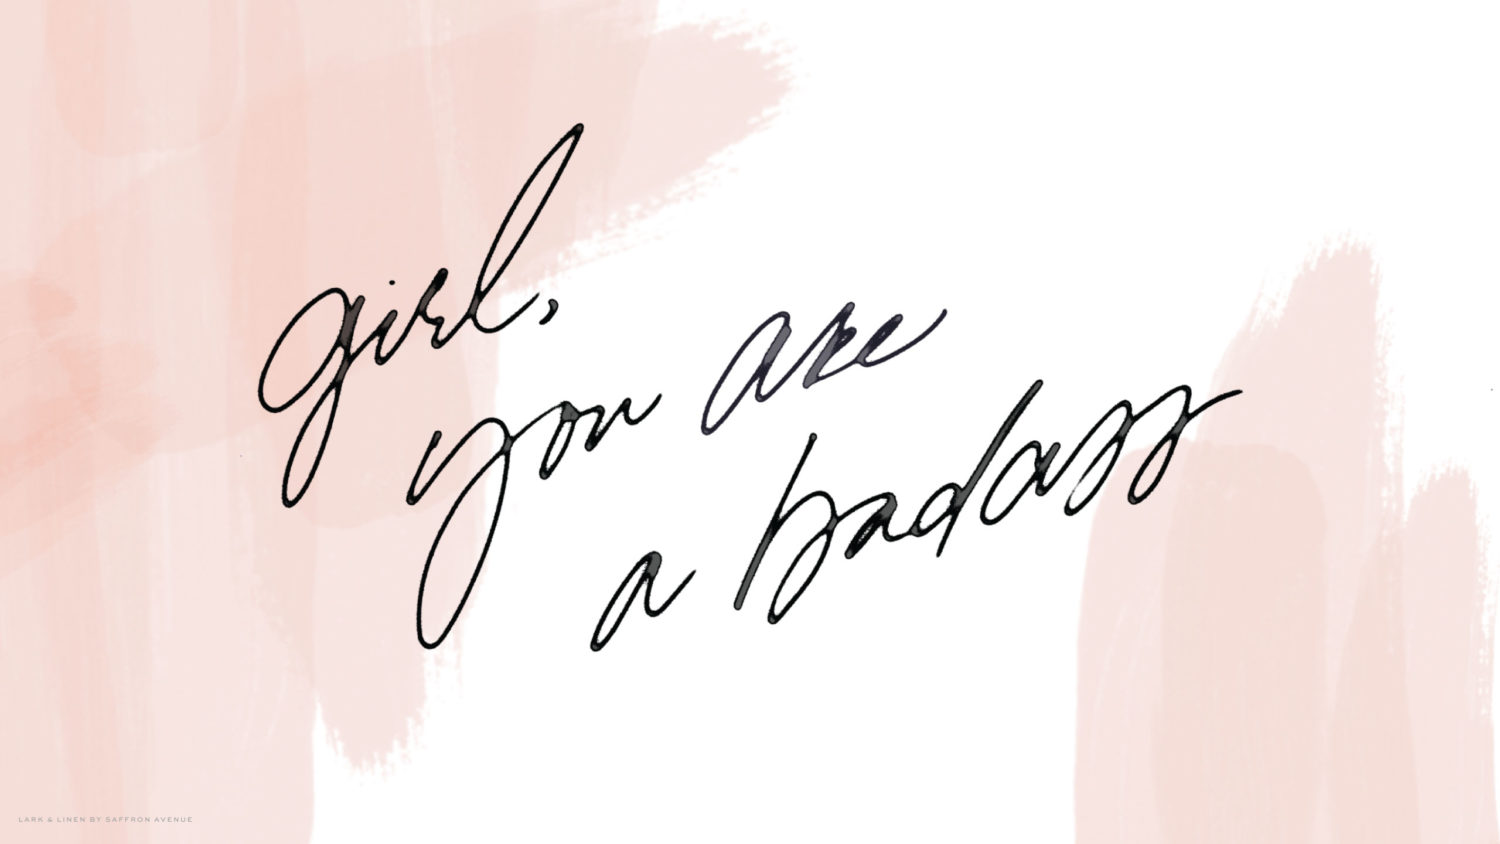 girl,
you are
a badass
LARK & LINEN BY SAFFRON AVENUE